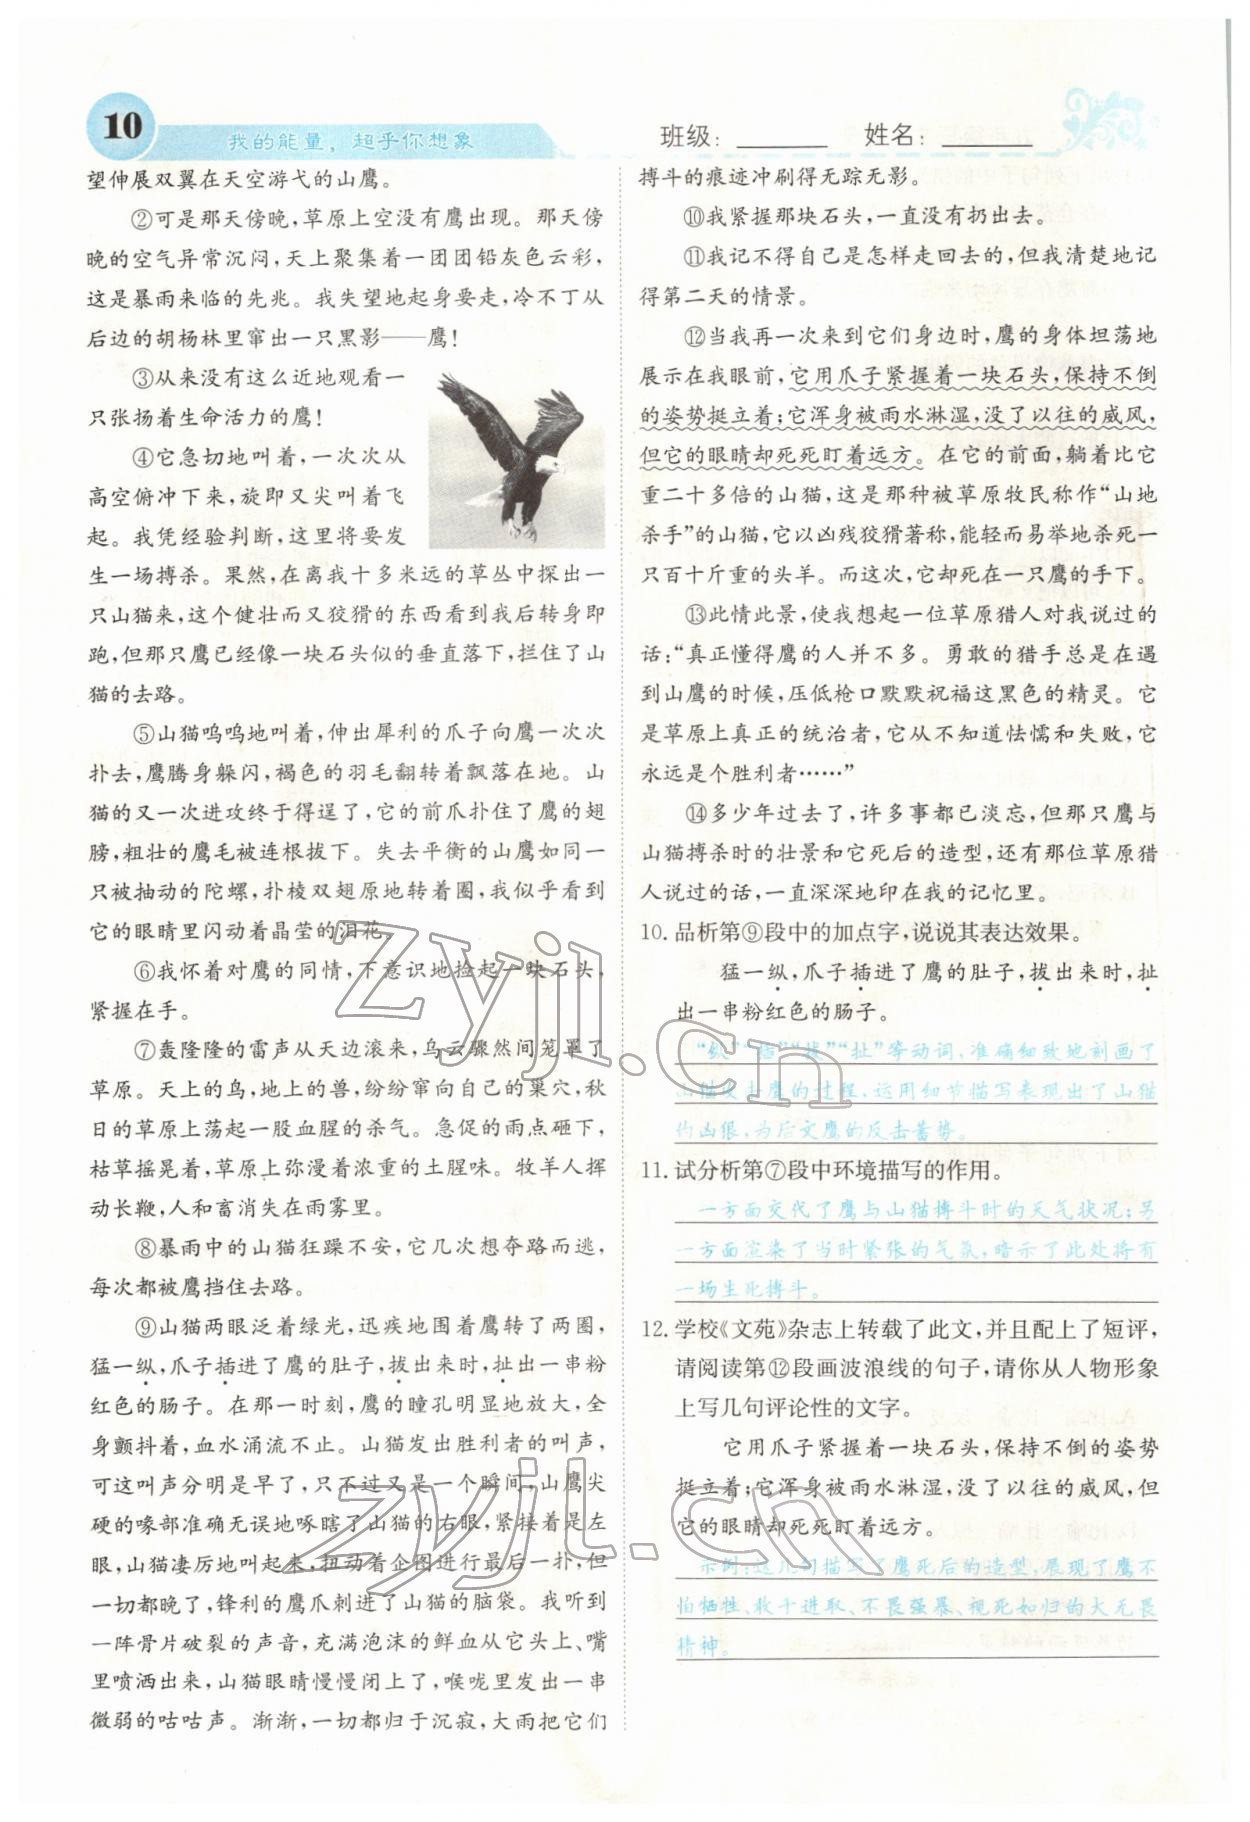 10
我的能量，超乎你想象
班级：
姓名：
望伸展双翼在天空游弋的山鹰。
②可是那天傍晚，草原上空没有鹰出现。那天傍
晚的空气异常沉闷，天上聚集着一团团铅灰色云彩，
这是暴雨来临的先兆。我失望地起身要走，冷不丁从
后边的胡杨林里窜出一只黑影——鹰！
③从来没有这么近地观看一
只张扬着生命活力的鹰！
④它急切地叫着，一次次从
高空俯冲下来，旋即又尖叫着飞
起。我凭经验判断，这里将要发
生一场搏杀。果然，在离我十多米远的草丛中探出一
只山猫来，这个健壮而又狡猾的东西看到我后转身即
跑，但那只鹰已经像一块石头似的垂直落下，拦住了山
猫的去路。
⑤山猫呜呜地叫着，伸出犀利的爪子向鹰一次次
扑去，鹰腾身躲闪，褐色的羽毛翻转着飘落在地。山
猫的又一次进攻终于得逞了，它的前爪扑住了鹰的翅
膀，粗壮的鹰毛被连根拔下。失去平衡的山鹰如同一
只被抽动的陀螺，扑棱双翅原地转着圈，我似乎看到
它的眼睛里闪动着晶莹的泪花。
⑥我怀着对鹰的同情，下意识地捡起一块石头，
紧握在手。
⑦轰隆隆的雷声从天边滚来，乌云骤然间笼罩了
草原。天上的鸟，地上的兽，纷纷窜向自己的巢穴，秋
日的草原上荡起一股血腥的杀气。急促的雨点砸下，
枯草摇晃着，草原上弥漫着浓重的土腥味。牧羊人挥
动长鞭，人和畜消失在雨雾里。
⑧暴雨中的山猫狂躁不安，它几次想夺路而逃，
每次都被鹰挡住去路。
⑨山猫两眼泛着绿光，迅疾地围着鹰转了两圈，
猛一纵，爪子插进了鹰的肚子，拔出来时，扯出一串粉
红色的肠子。在那一时刻，鹰的瞳孔明显地放大，全
身颤抖着，血水涌流不止。山猫发出胜利者的叫声，
可这叫声分明是早了些，只不过又是一个瞬间，山鹰尖
硬的喙部准确无误地啄瞎了山猫的右眼，紧接着是左
眼，山猫凄厉地叫起来，扭动着企图进行最后一扑，但
一切都晚了，锋利的鹰爪刺进了山猫的脑袋。我听到
一阵骨片破裂的声音，充满泡沫的鲜血从它头上、嘴
里喷洒出来，山猫眼睛慢慢闭上了，喉咙里发出一串
微弱的咕咕声。渐渐，一切都归于沉寂，大雨把它们
搏斗的痕迹冲刷得无踪无影。
⑩我紧握那块石头，一直没有扔出去。
⑪我记不得自己是怎样走回去的，但我清楚地记
得第二天的情景。
⑫当我再一次来到它们身边时，鹰的身体坦荡地
展示在我眼前，它用爪子紧握着一块石头，保持不倒
的姿势挺立着；它浑身被雨水淋湿，没了以往的威风，
但它的眼睛却死死盯着远方。在它的前面，躺着比它
重二十多倍的山猫，这是那种被草原牧民称作“山地
杀手”的山猫，它以凶残狡猾著称，能轻而易举地杀死一
只百十斤重的头羊。而这次，它却死在一只鹰的手下。
⑬此情此景，使我想起一位草原猎人对我说过的
话：“真正懂得鹰的人并不多。勇敢的猎手总是在遇
到山鹰的时候，压低枪口默默祝福这黑色的精灵。它
是草原上真正的统治者，它从不知道怯懦和失败，它
永远是个胜利者……”
⑭多少年过去了，许多事都已淡忘，但那只鹰与
山猫搏杀时的壮景和它死后的造型，还有那位草原猎
人说过的话，一直深深地印在我的记忆里。
10. 品析第⑨段中的加点字，说说其表达效果。
猛一纵，爪子插进了鹰的肚子，拔出来时，扯
出一串粉红色的肠子。
“纵”“插”“拔”“扯”等动词，准确细致地刻画了
山猫攻击鹰的过程，运用细节描写表现出了山猫
的凶狠，为后文鹰的反击蓄势。
11. 试分析第⑦段中环境描写的作用。
一方面交代了鹰与山猫搏斗时的天气状况；另
一方面渲染了当时紧张的气氛，暗示了此处将有
一场生死搏斗。
12. 学校《文苑》杂志上转载了此文，并且配上了短评，
请阅读第⑫段画波浪线的句子，请你从人物形象
上写几句评论性的文字。
它用爪子紧握着一块石头，保持不倒的姿势
挺立着；它浑身被雨水淋湿，没了以往的威风，但
它的眼睛却死死盯着远方。
示例：这几句描写了鹰死后的造型，展现了鹰不
怕牺牲、敢于进取、不畏强暴、视死如归的大无畏
精神。
zyjl.cn
zyjl.cn